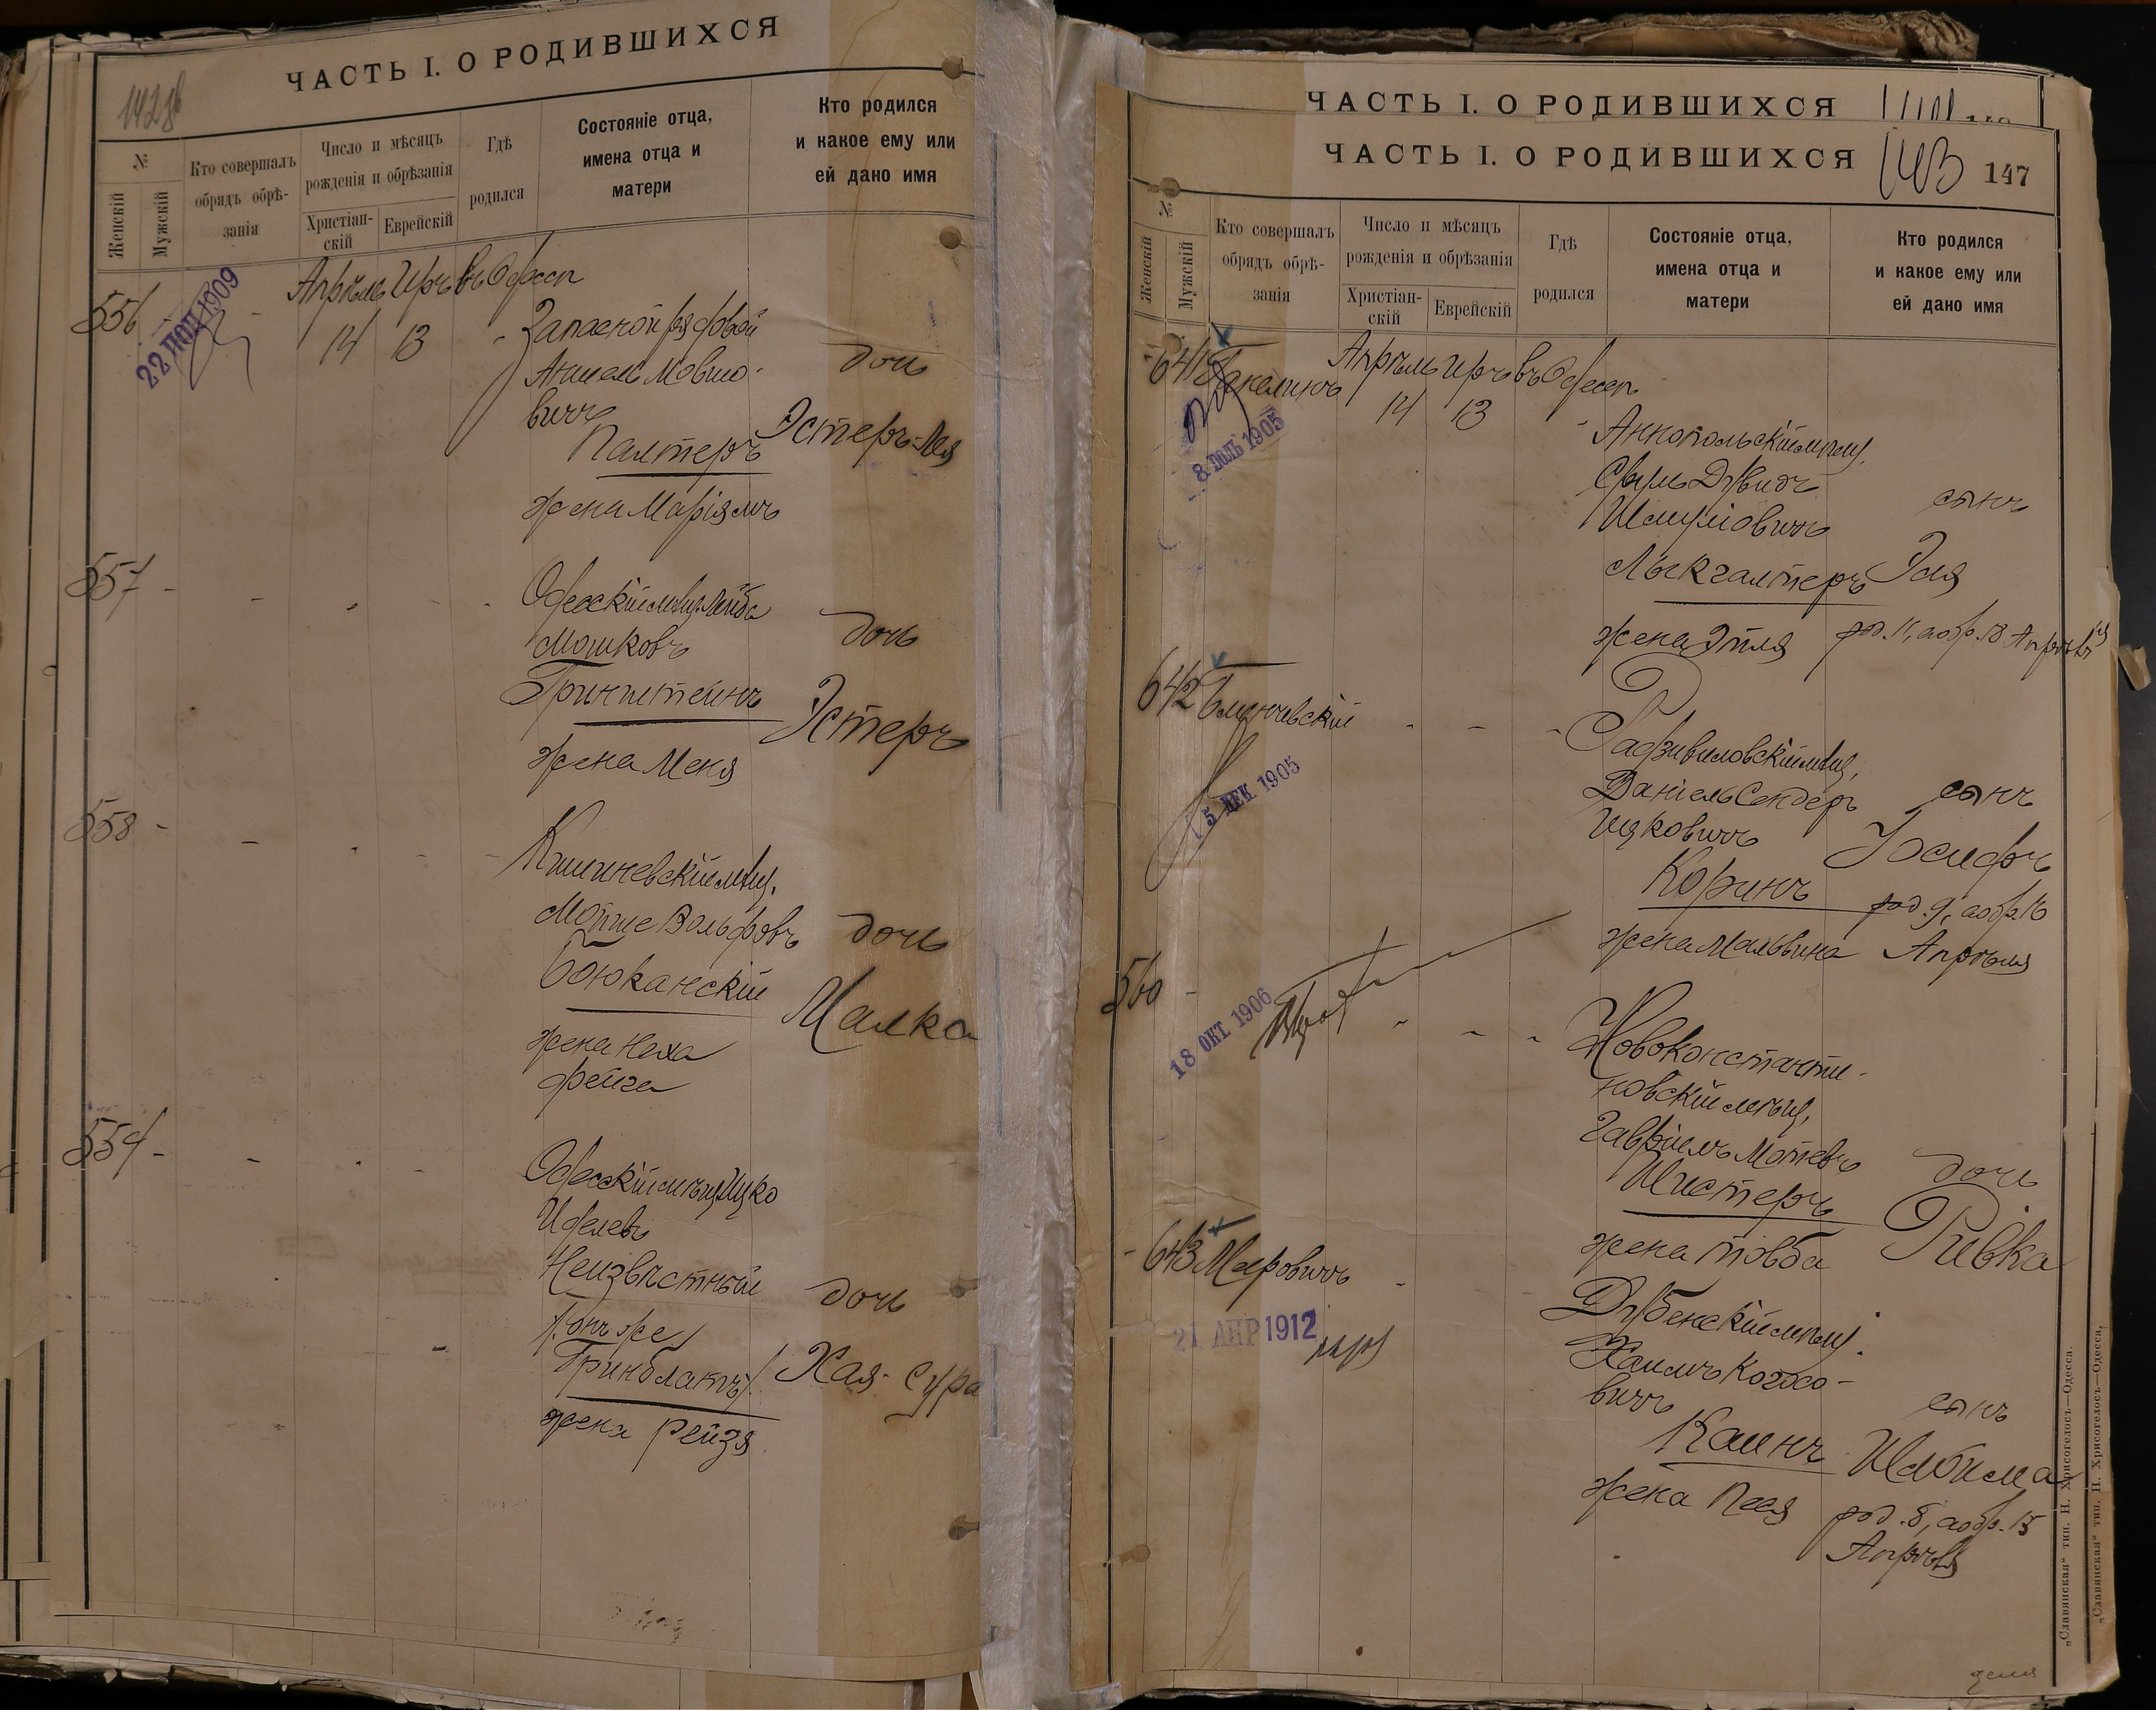 ЧАСТЬ I. О РОДИВШИХСЯ
№
Женскій
Мужскій
Кто совершалъ
обрядъ обрѣ-
занія
Число и мѣсяцъ
рожденія и обрѣзанія
Христіан-
скій
Еврейскій
Гдѣ
родился
Состояніе отца,
имена отца и
матери
Кто родился
и какое ему или
ей дано имя
556
22 1909
Апрѣль Иръ въ Одессѣ
14 13
Запасной рядовой
Аншель Мовшо-
вичъ
Палтеръ
жена Маріямъ
дочь
Эстеръ-Лея
557
Одесскій мѣщ. Лейба
Мошковъ
Гринштейнъ
жена Меня
дочь
Эстеръ
558
Кишиневскій мѣщ.
Мотше Вольфовъ
Боюканскій
жена Неха
Фейга
дочь
Малка
559
Одесскій мѣщ. Ицко
Иделевъ
Неизвѣстный
/онъ же/
Гринблатъ/
жена Рейзя
дочь
Хая-Сура
ЧАСТЬ I. О РОДИВШИХСЯ
ЧАСТЬ I. О РОДИВШИХСЯ
143
147
№
Женскій
Мужскій
Кто совершалъ
обрядъ обрѣ-
занія
Число и мѣсяцъ
рожденія и обрѣзанія
Христіан-
скій
Еврейскій
Гдѣ
родился
Состояніе отца,
имена отца и
матери
Кто родился
и какое ему или
ей дано имя
641
8 1905
Апрѣль Иръ въ Одессѣ
14 13
Аннопольскій мѣщ.
Сруль Дувидъ
Шмулiовичъ
жена Этля
сынъ
Эля
род. 11, а обр. 18 Апрѣля
642
5 ДЕК 1905
Радзивиловскій мѣщ.
Даніель Сендеръ
Ицковичъ
Коринъ
жена Мальвина
сынъ
Іосифъ
род. 9, а обр. 16
Апрѣля
560
18 ОКТ 1906
Новоконстанти-
новскій мѣщ.
Гавріилъ Мотевъ
Шистеръ
жена Товба
дочь
Ривка
643 Мееровичъ
21 АПР 1912
Дубенскій мѣщ.
Хаимъ Когосо-
вичъ
Каинъ
жена Песя
сынъ
род. 8, а обр. 15
Апрѣля
„Славянская“ тип. Н. Хрисогелосъ—Одесса.
„Славянская“ тип. Н. Хрисогелосъ—Одесса.